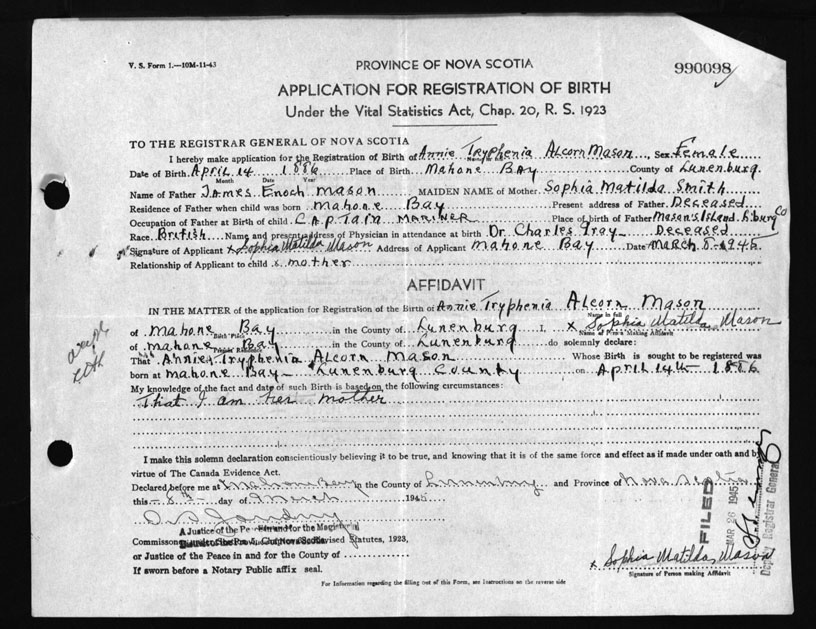 V. S. Form 1.—10M-11-43
PROVINCE OF NOVA SCOTIA
990098
APPLICATION FOR REGISTRATION OF BIRTH
Under the Vital Statistics Act, Chap. 20, R. S. 1923
TO THE REGISTRAR GENERAL OF NOVA SCOTIA
I hereby make application for the Registration of Birth of Annie Tryphenia Alcorn Mason, Sex Female
Date of Birth April 14 1886 Place of Birth Mahone Bay County of Lunenburg
Month Date Year
Name of Father James Enoch Mason MAIDEN NAME of Mother Sophia Matilda Smith
Residence of Father when child was born Mahone Bay Present address of Father Deceased
Occupation of Father at Birth of child Captain Mariner Place of birth of Father Masons Island
Race British Name and present address of Physician in attendance at birth Dr Charles Gray Deceased
Signature of Applicant x Sophia Matilda Mason Address of Applicant Mahone Bay Date March 8-1945
Relationship of Applicant to child x mother
AFFIDAVIT
IN THE MATTER of the application for Registration of the Birth of Annie Tryphenia Alcorn Mason
Name in full
of Mahone Bay in the County of Lunenburg I, x Sophia Matilda Mason
Birth Place Name of Person making Affidavit
of Mahone Bay in the County of Lunenburg do solemnly declare:
Present Residence
That Annie Tryphenia Alcorn Mason Whose Birth is sought to be registered was
born at Mahone Bay Lunenburg County on April 14th 1886
My knowledge of the fact and date of such Birth is based on the following circumstances:
That I am her mother
I make this solemn declaration conscientiously believing it to be true, and knowing that it is of the same force and effect as if made under oath and by
virtue of The Canada Evidence Act.
Declared before me at Mahone Bay in the County of Lunenburg and Province of Nova Scotia
this 8th day of March 1945
A Justice of the Peace in and for the
Commissioner under Chap. Revised Statutes, 1923,
or Justice of the Peace in and for the County of
If sworn before a Notary Public affix seal.
FILED
MAR 26 1945
Deputy Registrar General
x Sophia Matilda Mason
Signature of Person making Affidavit
For Information regarding the filling out of this Form, see Instructions on the reverse side